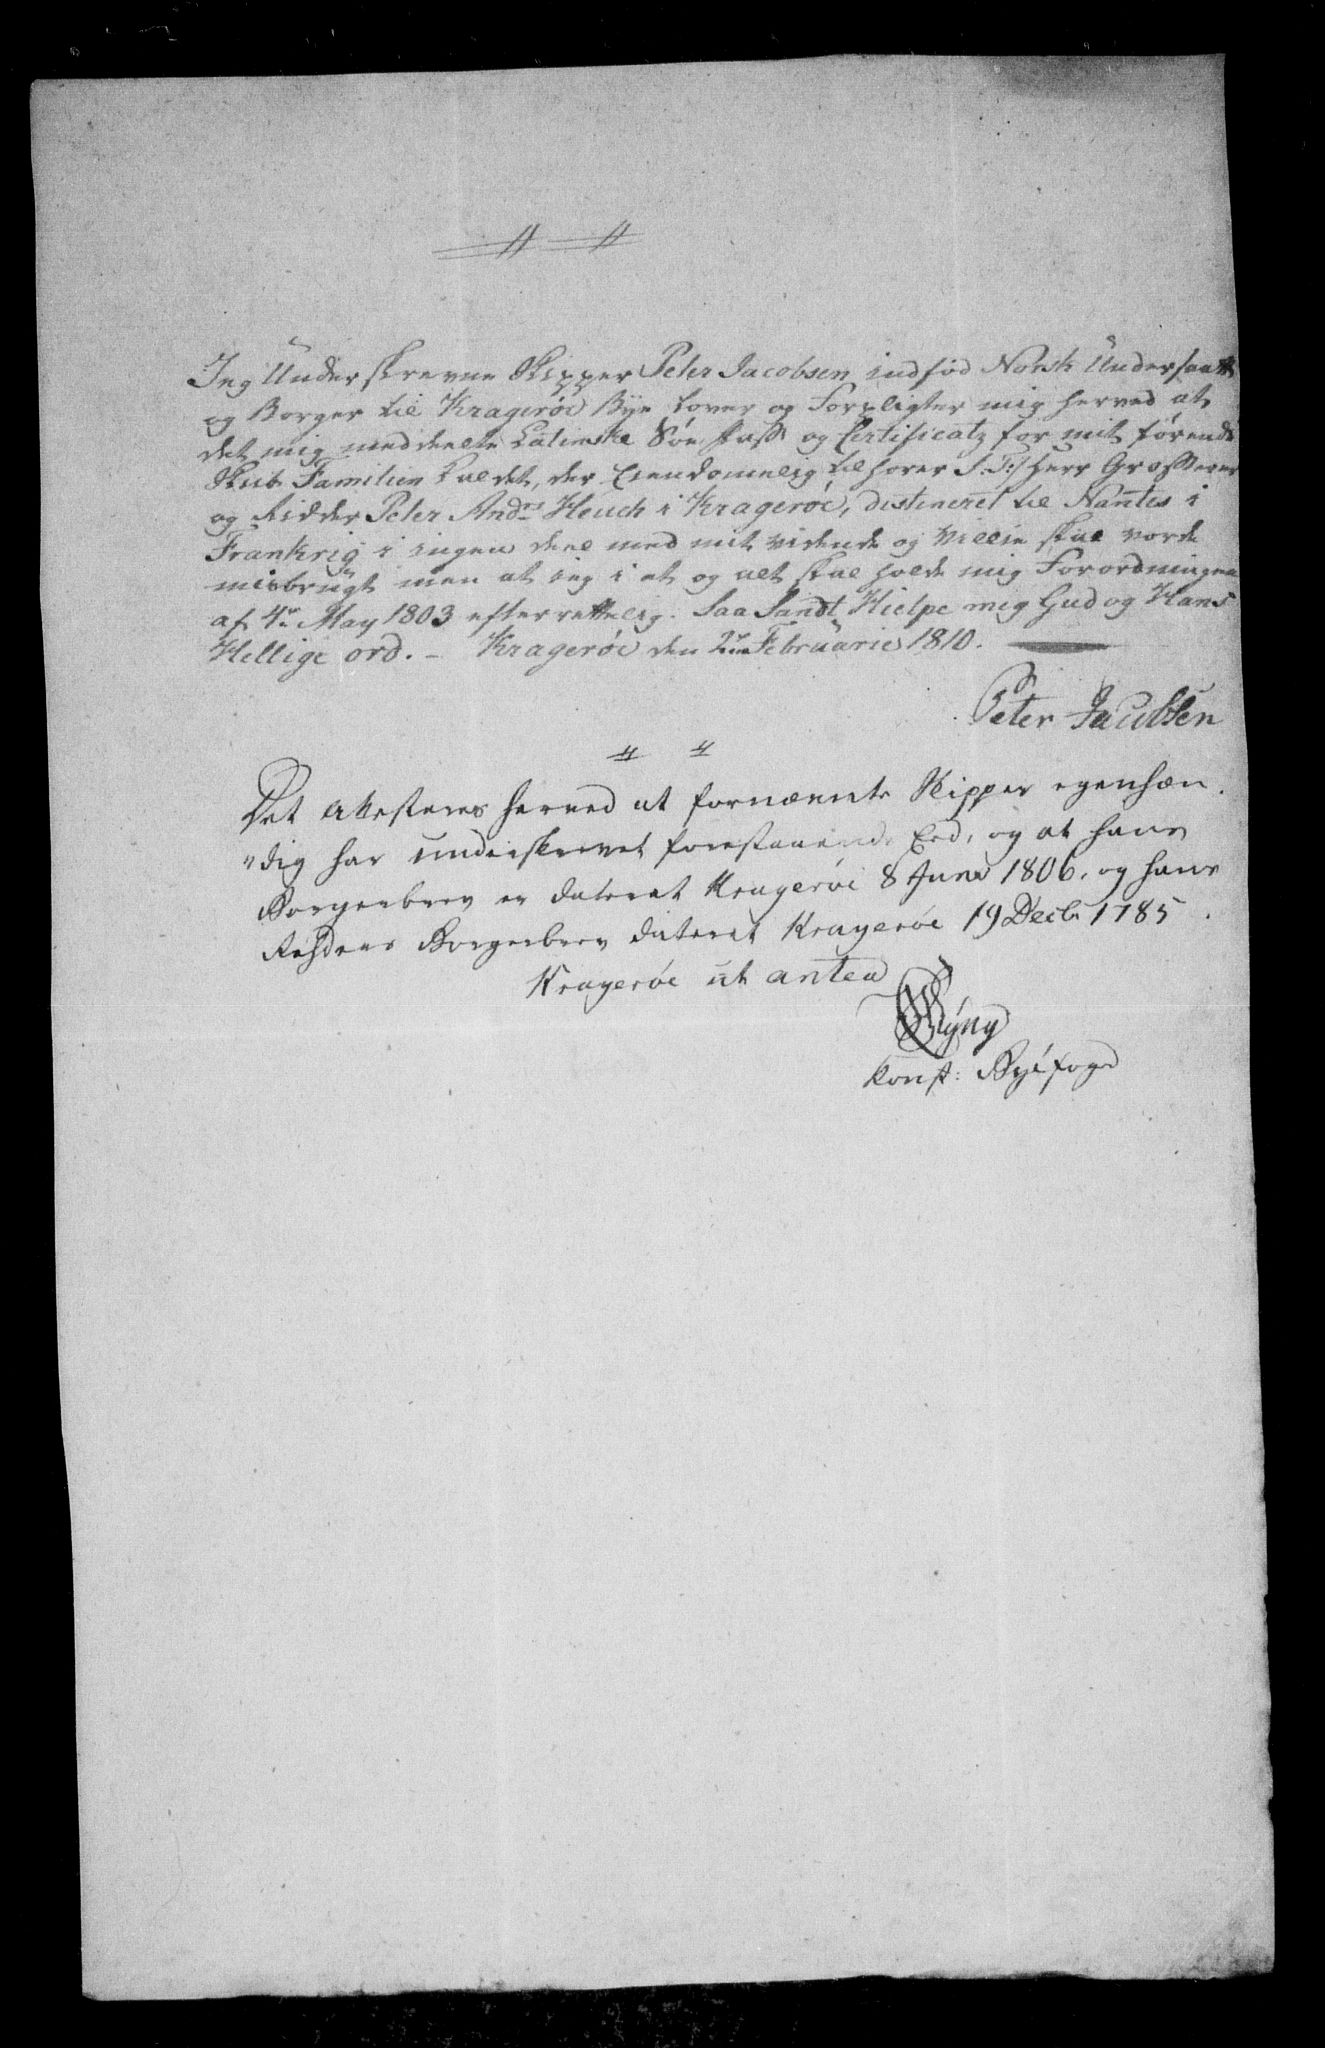 Jeg Underskrevne Skipper Peter Jacobsen indfød Norsk Undersaatt
og Borger til Kragerøe Bye lover og Forpligter mig herved at
det mig meddeelte Latinske Søe Pass og Certificatz for mit førende
Skib Familien kaldet, der Eiendommelig tilhører S: T: Herr Grosserer
og Ridder Peter Andrs Heuch i Kragerøe, distineret til Nantes i
Frankrig i ingen deel med mit vidende og Villie skal vorde
misbrugt men at jeg i et og alt skal holde mig Forordningen
af 4de May 1803 efterrettelig. Saa Sandt Hielpe mig Gud og Hans
Hellige ord. – Kragerøe den 2den Februarie 1810.
Peter Jacobsen
Det Attesteres herved at fornævnte Skipper egenhæn
"dig har underskrevet forestaaende Eed, og at hans
Borgerbrev er dateret Kragerøe 8 Juni 1806, og hans
Rehders Borgerbrev dateret Kragerøe 19 Decbr 1785.
Kragerøe ut antea
Konst: Byefoged